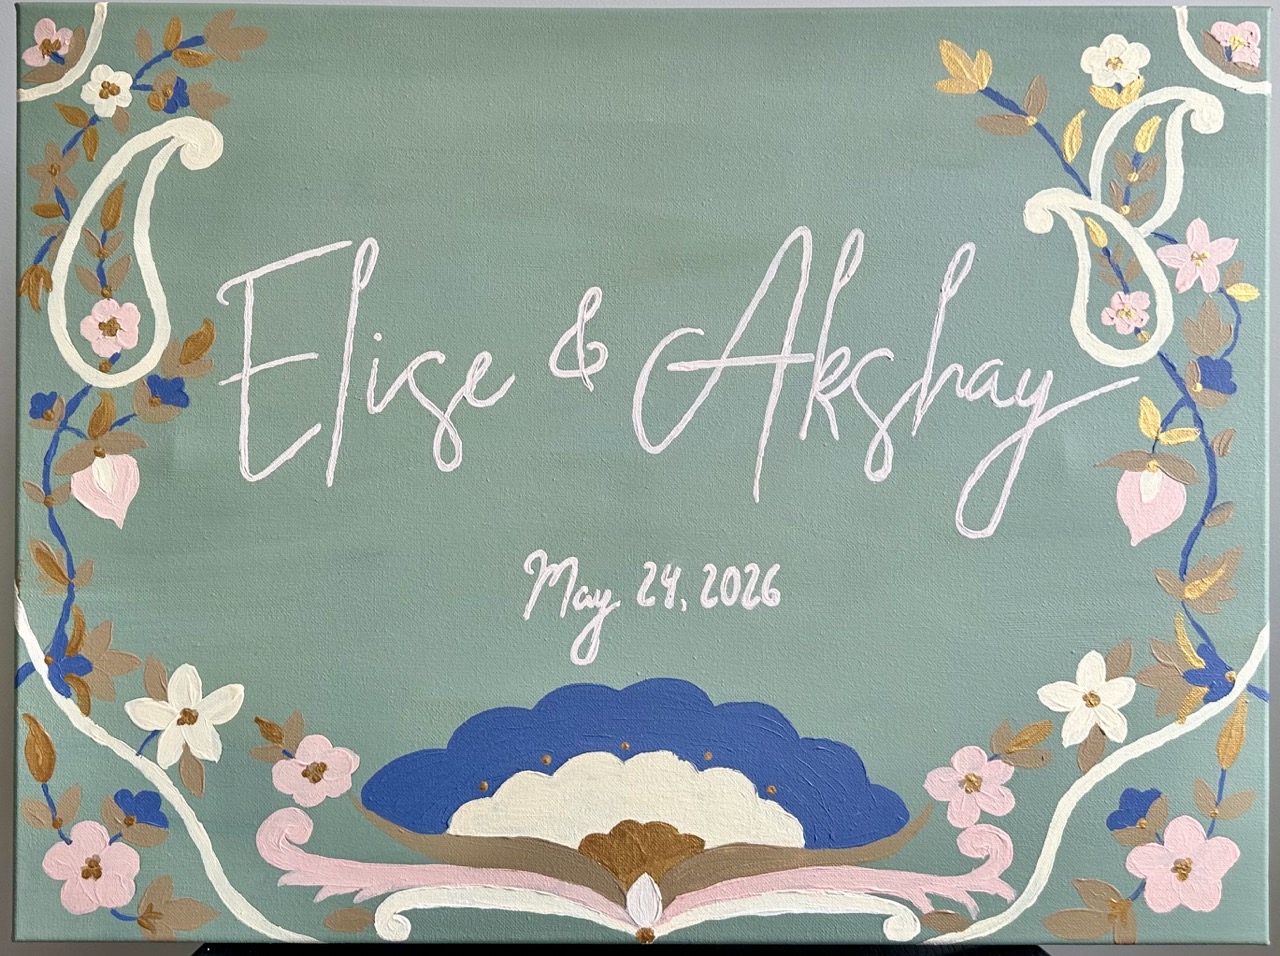 Elise & Akshay
May 24, 2026